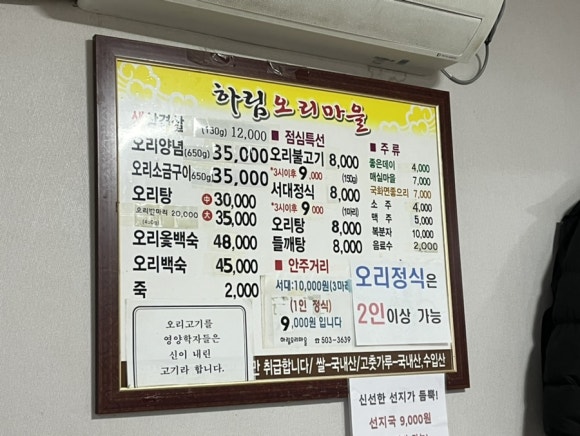 하림오리마을
생삼겹살 (130g) 12,000
오리양념 (650g) 35,000
오리소금구이 (650g) 35,000
오리탕 中 30,000
오리반마리 20,000 大 35,000
오리옻백숙 48,000
오리백숙 45,000
죽 2,000
오리고기를
영양학자들은
신이 내린
고기라 합니다.
■ 점심특선
오리불고기 8,000
*3시이후 9,000 (150g)
서대정식 8,000
*3시이후 9,000 (1마리)
오리탕 8,000
들깨탕 8,000
■ 안주거리
서대:10,000원(3마리
(1인 정식)
9,000원 입니다
하림오리마을 ☎ 503-3639
■ 주류
좋은데이 4,000
매실마을 7,000
국화면좋으리 7,000
소주 4,000
맥주 5,000
복분자 10,000
음료수 2,000
오리정식은
2인이상 가능
만 취급합니다/ 쌀-국내산/고춧가루-국내산,수입산
신선한 선지가 듬뿍!
선지국 9,000원